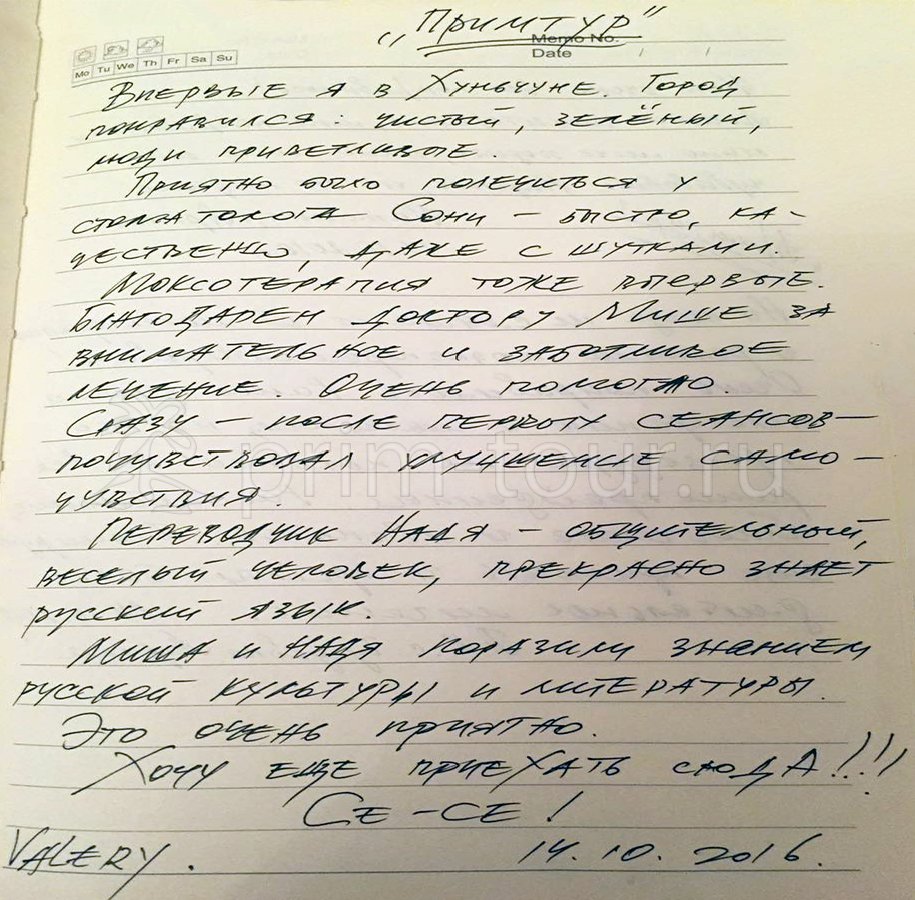 „Примтур"
Memo No.
Date / /
Mo Tu We Th Fr Sa Su
Впервые я в Хуньчуне. Город
понравился: чистый, зелёный,
люди приветливые.
Приятно было полечиться у
стоматолога Сони – быстро, ка-
чественно, даже с шутками.
Моксотерапия тоже впервые.
Благодарен доктору Мише за
внимательное и заботливое
лечение. Очень помогло
Сразу – после первых сеансов –
почувствовал улучшение само-
чувствия.
Переводчик Надя – общительный,
веселый человек, прекрасно знает
русский язык.
Миша и Надя поразили знанием
русской культуры и литературы.
Это очень приятно.
Хочу еще приехать сюда!!!
Се-се!
Valery. 14.10.2016.
prim-tour.ru